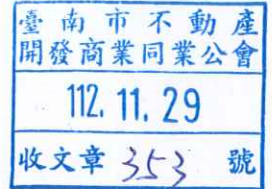 臺南市不動產
開發商業同業公會
112.11.29
收文章 353 號